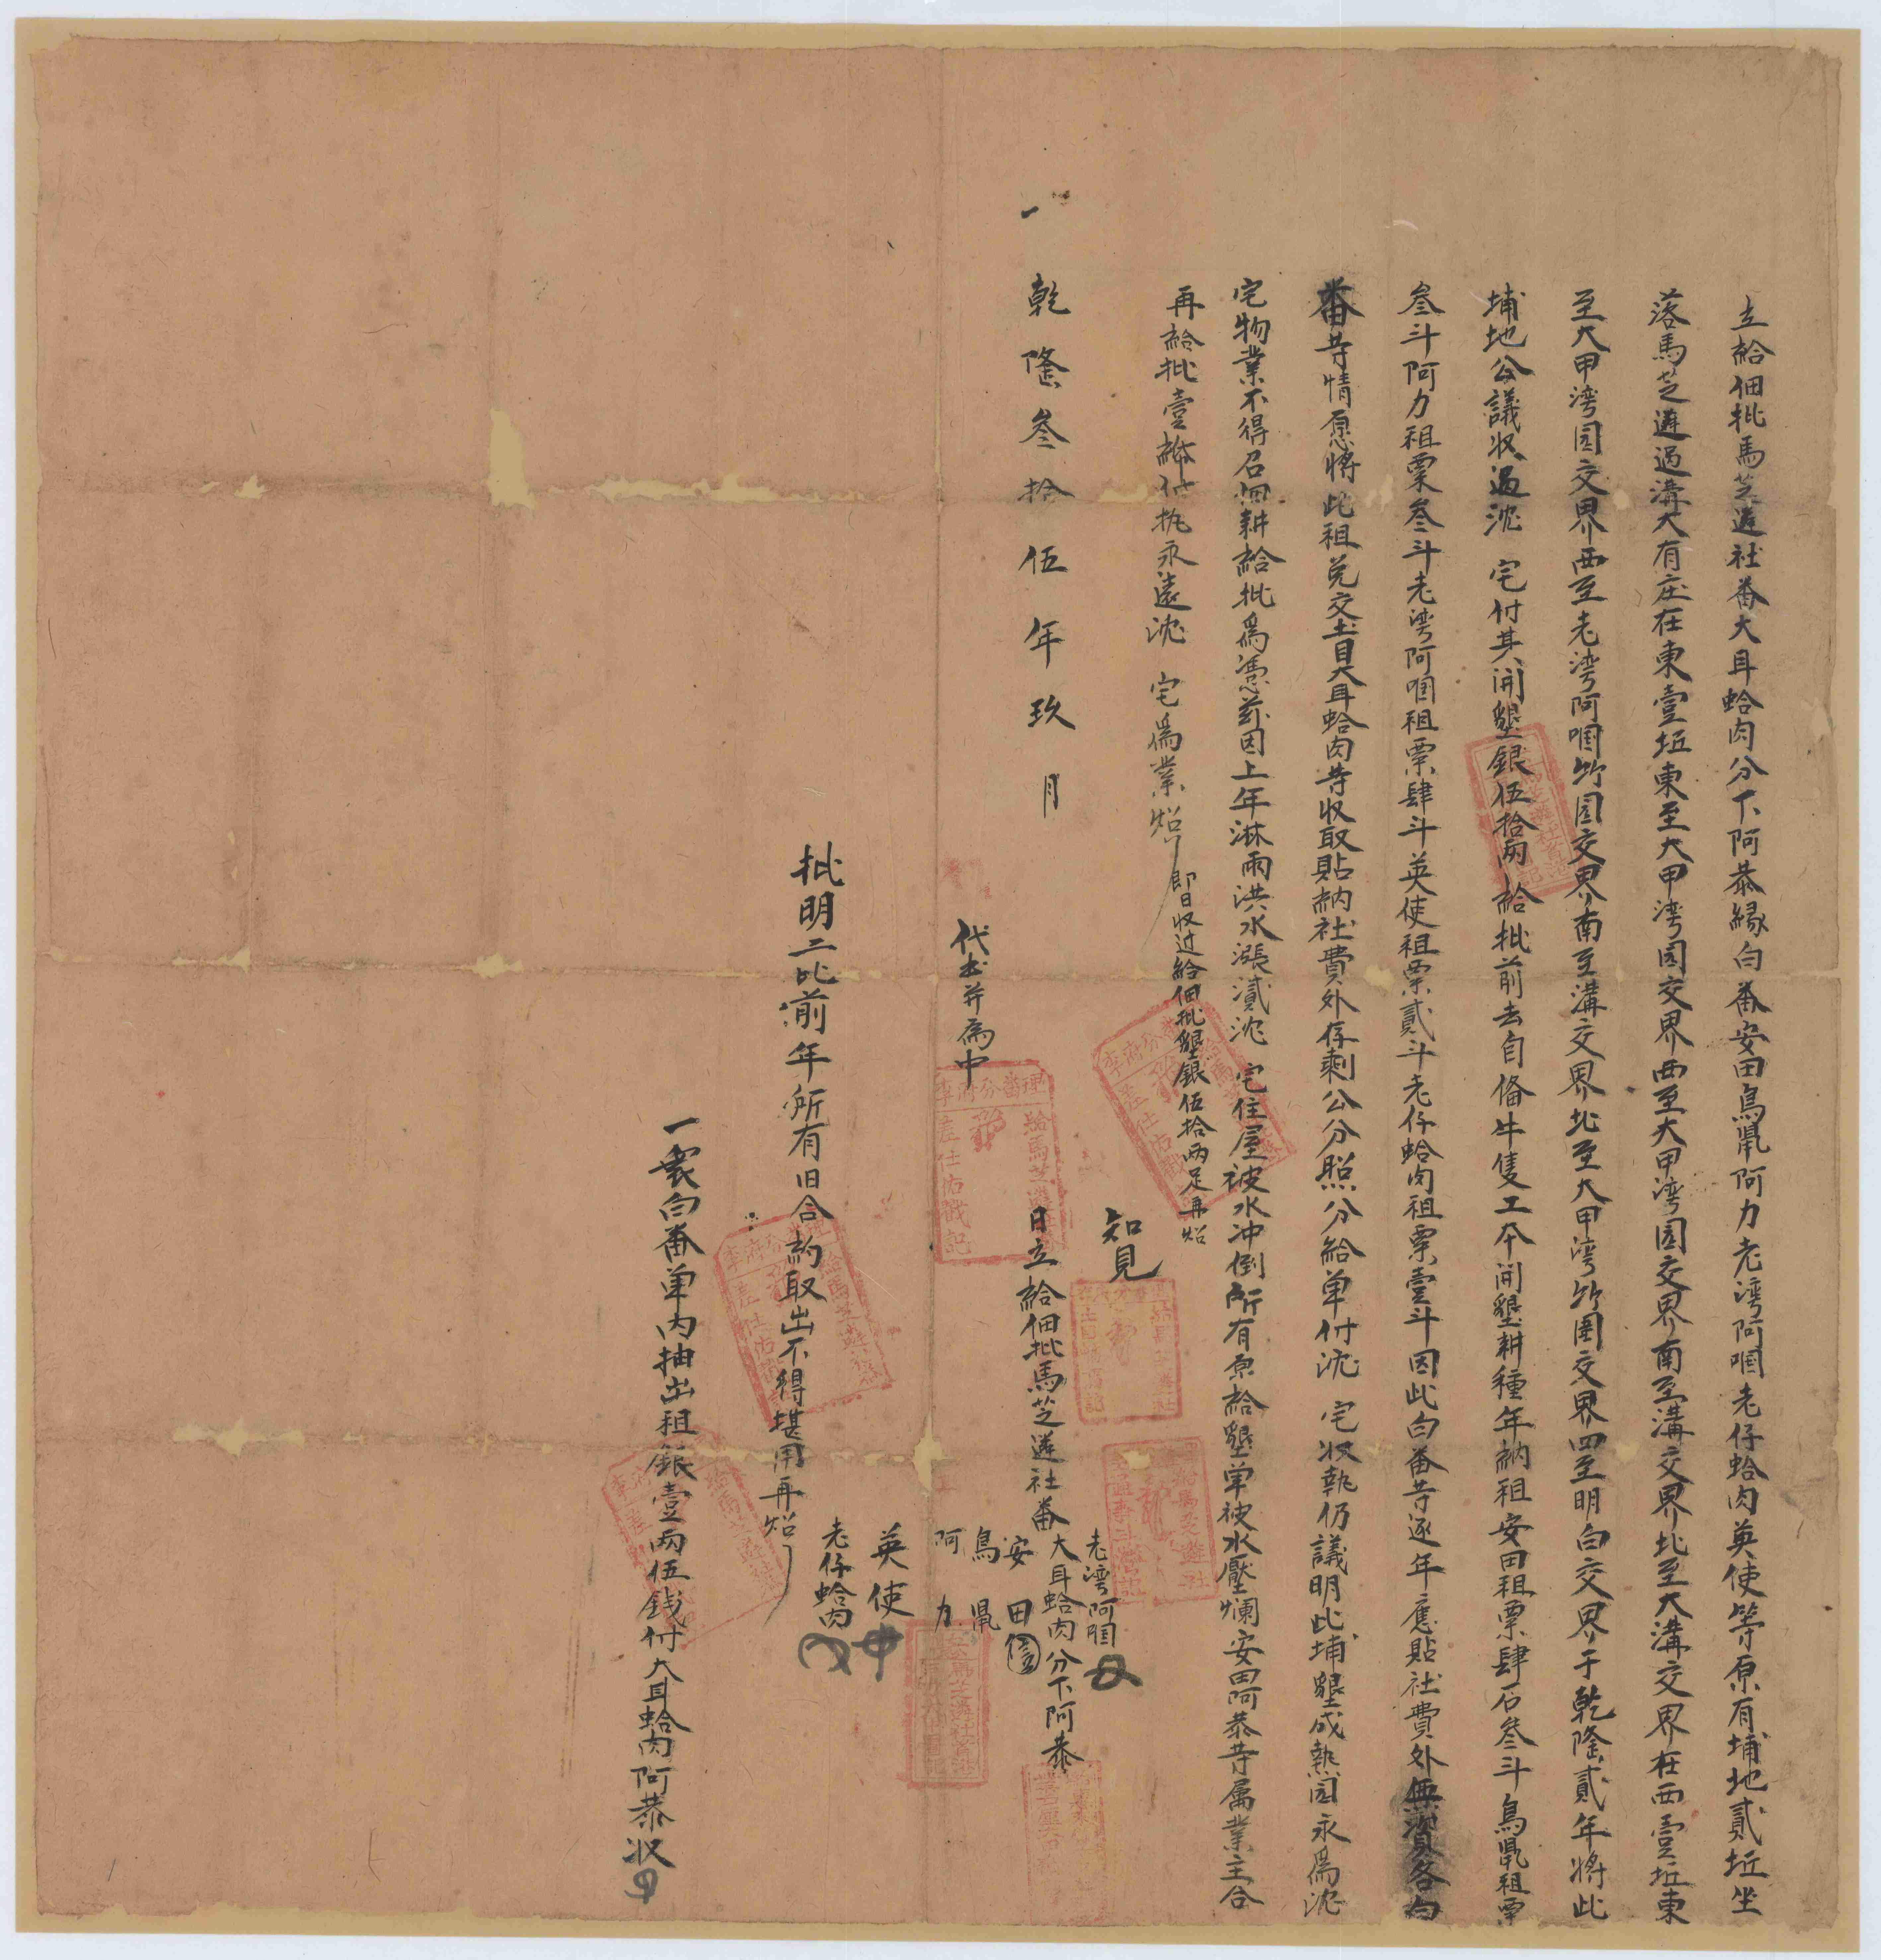 立給佃批馬芝遴社番大耳蛤肉分下阿恭緣白番安田鳥鼠阿力老湾阿啯老仔蛤肉英使等原有埔地貳坵坐
落馬芝遴過溝大有庄在東壹坵東至大甲湾园交界西至大甲湾园交界南至溝交界北至大溝交界在西壹坵東
至大甲湾园交界西至老湾阿啯竹围交界南至溝交界北至大甲湾竹围交界四至明白交界于乾隆貳年將此
埔地公議收過沈　宅付其開墾銀伍拾兩給批前去自俻牛隻工本開墾耕種年納租安田租粟肆石叁斗鳥鼠租粟
叁斗阿力租粟叁斗老湾阿啯租粟肆斗英使租粟貳斗老仔蛤肉租粟壹斗因此白番等逐年應貼社費外無資各白
番等情愿將此租兑交土目大耳蛤肉等收取貼納社費外存剩公分照分給单付沈　宅收執仍議明此埔墾成熟园永為沈
宅物業不得召佃耕給批為憑兹因上年淋雨洪水漲濆沈　宅住屋被水冲倒所有原給墾单被水壓爛安田阿恭等属業主合
再給批壹紙付执永遠沈　宅為業炤
即日收过給佃批墾銀伍拾兩足再炤
知見
老湾阿啯
一　乾隆叁拾伍年玖月　日立給佃批馬芝遴社番大耳蛤肉分下阿恭
安田
鳥鼠
阿力
代书并為中
英使
老仔蛤肉
批明二比前年所有旧合約取出不得堪用再炤
一衆白番单内抽出租銀壹兩伍銭付大耳蛤肉阿恭收